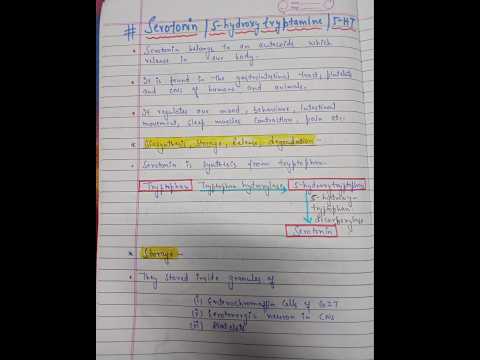 # Serotonin / 5-hydroxytryptamine / 5-HT
• Serotonin belongs to an autacoids which
release in our body.
• It is found in the gastrointestinal tract, platelets
and CNS of humans and animals.
• It regulates our mood, behaviour, intestinal
movement, sleep muscles contraction, pain etc.
Biosynthesis, storage, release, degradation -
• Serotonin is synthesis from tryptophan.
Tryptophan Tryptophan hydroxylase 5-hydroxytryptophan
5-hydroxy-
tryptophan
decarboxylase
Serotonin
Storage -
• They stored inside granules of
(i) Enterochromaffin cells of GIT
(ii) Serotonergic neuron in CNS
(iii) Platelets